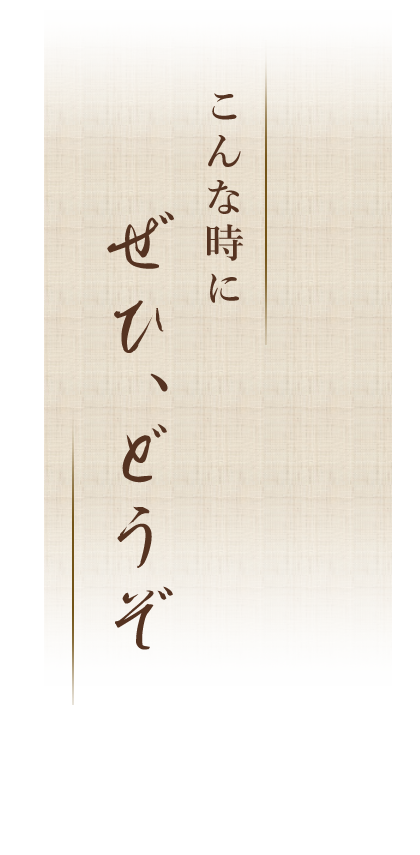 こんな時に
ぜひ、どうぞ